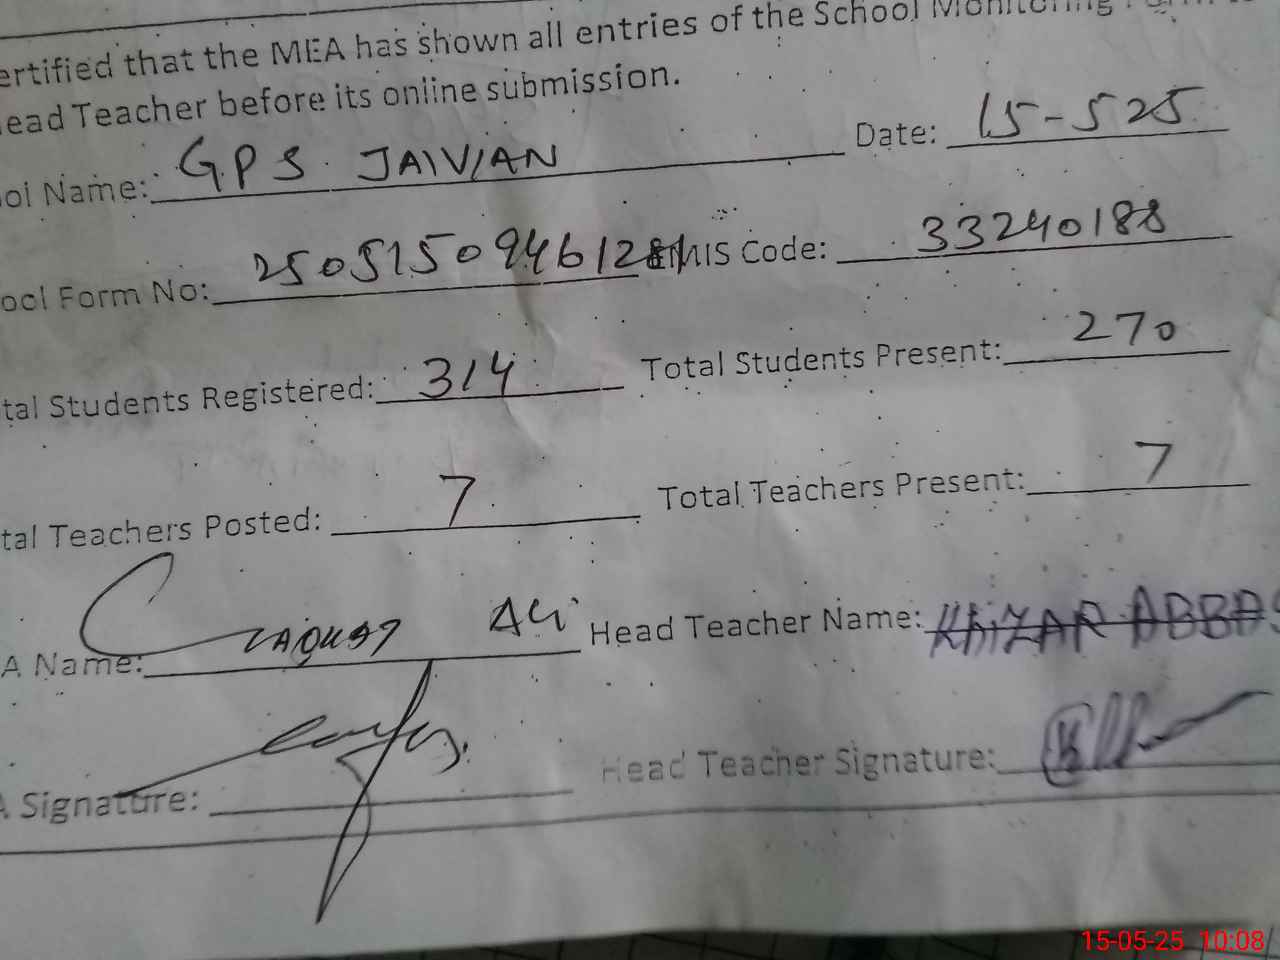 ertified that the MEA has shown all entries of the School Monitoring Form to
ead Teacher before its online submission.
ol Name: GPS JAIVIAN Date: 15-525
ool Form No: EMIS Code: 33240188
tal Students Registered: 314 Total Students Present: 270
tal Teachers Posted: 7 Total Teachers Present: 7
A Name: LAQUAT ALI Head Teacher Name: KHIZAR ABBAS
A Signature: Head Teacher Signature:
15-05-25 10:08